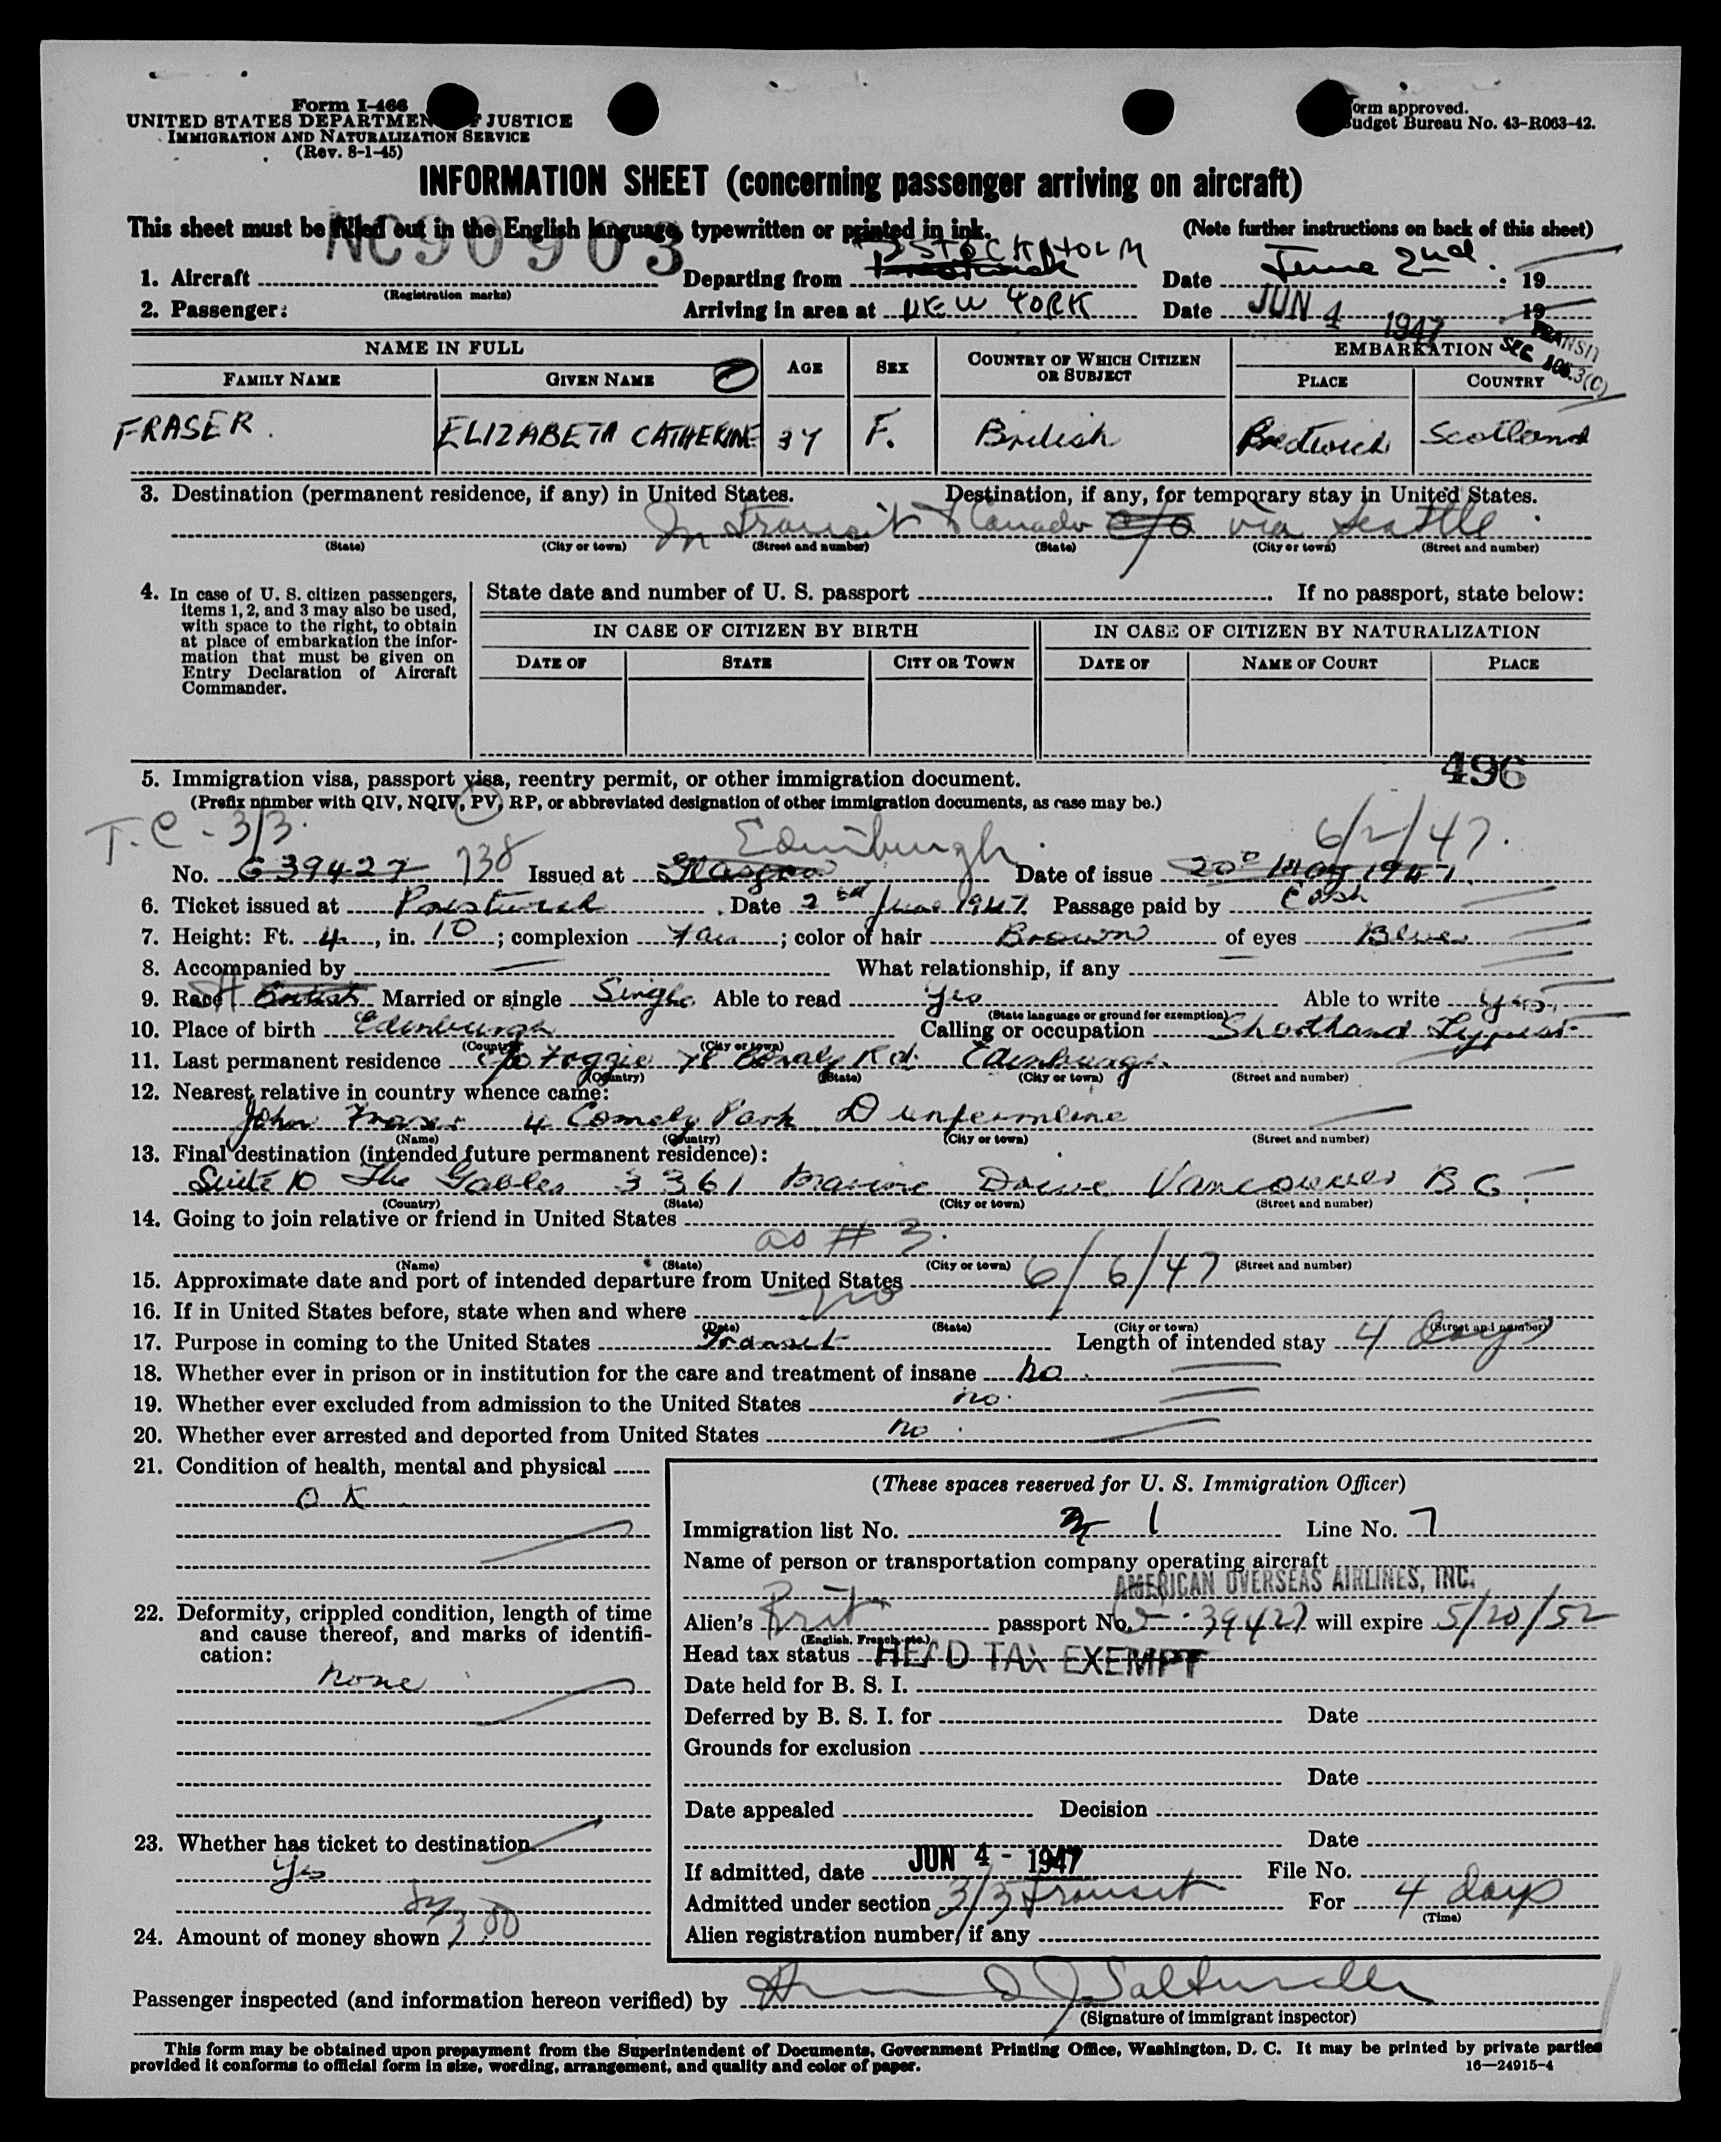 Form I-466
UNITED STATES DEPARTMENT OF JUSTICE
IMMIGRATION AND NATURALIZATION SERVICE
(Rev. 8-1-45)
Form approved.
Budget Bureau No. 43-R063-42.
INFORMATION SHEET (concerning passenger arriving on aircraft)
This sheet must be filled out in the English language, typewritten or printed in ink. (Note further instructions on back of this sheet)
NC90903
1. Aircraft (Registration marks) Departing from STOCKHOLM Date June 2nd. 19
2. Passenger: Arriving in area at NEW YORK Date JUN 4 1947 19
TRANSIT SEC 106.3(C)
NAME IN FULL AGE SEX COUNTRY OF WHICH CITIZEN OR SUBJECT EMBARKATION
FAMILY NAME GIVEN NAME PLACE COUNTRY
FRASER. ELIZABETH CATHERINE 34 F. British Prestwick Scotland
3. Destination (permanent residence, if any) in United States. Destination, if any, for temporary stay in United States.
In Transit to Canada c/o via Seattle.
(State) (City or town) (Street and number) (State) (City or town) (Street and number)
4. In case of U. S. citizen passengers, items 1, 2, and 3 may also be used, with space to the right, to obtain at place of embarkation the information that must be given on Entry Declaration of Aircraft Commander.
State date and number of U. S. passport If no passport, state below:
IN CASE OF CITIZEN BY BIRTH IN CASE OF CITIZEN BY NATURALIZATION
DATE OF STATE CITY OR TOWN DATE OF NAME OF COURT PLACE
496
5. Immigration visa, passport visa, reentry permit, or other immigration document.
(Prefix number with QIV, NQIV, PV, RP, or abbreviated designation of other immigration documents, as case may be.)
T.C - 3/3. Edinburgh. 6/2/47.
No. G 39427 738 Issued at Glasgow Date of issue 20th May 1947.
6. Ticket issued at Prestwick Date 2nd June 1947 Passage paid by Cash
7. Height: Ft. 4, in. 10; complexion Fair; color of hair Brown of eyes Blue
8. Accompanied by — What relationship, if any —
9. Race British Married or single Single Able to read Yes Able to write yes.
(State language or ground for exemption)
10. Place of birth Edinburgh Calling or occupation Shorthand Typist
(Country) (City or town)
11. Last permanent residence c/o Foggie 78 Bonaly Rd. Edinburgh.
(Country) (State) (City or town) (Street and number)
12. Nearest relative in country whence came:
John Fraser 4 Comely Park Dunfermline
(Name) (Country) (City or town) (Street and number)
13. Final destination (intended future permanent residence):
Suite 10 The Gables 3361 Marine Drive Vancouver B C.
(Country) (State) (City or town) (Street and number)
14. Going to join relative or friend in United States
as # 3.
(Name) (State) (City or town) (Street and number)
15. Approximate date and port of intended departure from United States 6/6/47
16. If in United States before, state when and where no
(Date) (State) (City or town) (Street and number)
17. Purpose in coming to the United States Transit Length of intended stay 4 Days
18. Whether ever in prison or in institution for the care and treatment of insane no
19. Whether ever excluded from admission to the United States no.
20. Whether ever arrested and deported from United States no.
21. Condition of health, mental and physical
O K
22. Deformity, crippled condition, length of time and cause thereof, and marks of identification:
none
23. Whether has ticket to destination
yes
24. Amount of money shown
(These spaces reserved for U. S. Immigration Officer)
Immigration list No. 1 Line No. 7
Name of person or transportation company operating aircraft
AMERICAN OVERSEAS AIRLINES, INC.
Alien's Brit passport No. 39427 will expire 5/20/52
(English, French, etc.)
Head tax status HEAD TAX EXEMPT
Date held for B. S. I.
Deferred by B. S. I. for Date
Grounds for exclusion
Date
Date appealed Decision
Date
If admitted, date JUN 4 - 1947 File No.
Admitted under section 3/3 transit For 4 days
(Time)
Alien registration number, if any
Passenger inspected (and information hereon verified) by
(Signature of immigrant inspector)
This form may be obtained upon prepayment from the Superintendent of Documents, Government Printing Office, Washington, D. C. It may be printed by private parties
provided it conforms to official form in size, wording, arrangement, and quality and color of paper. 16—24915-4